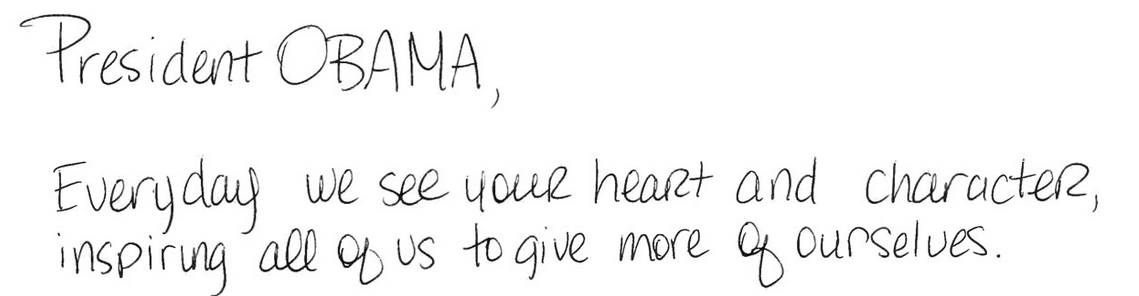 President OBAMA,
Everyday we see your heart and character,
inspiring all of us to give more of ourselves.